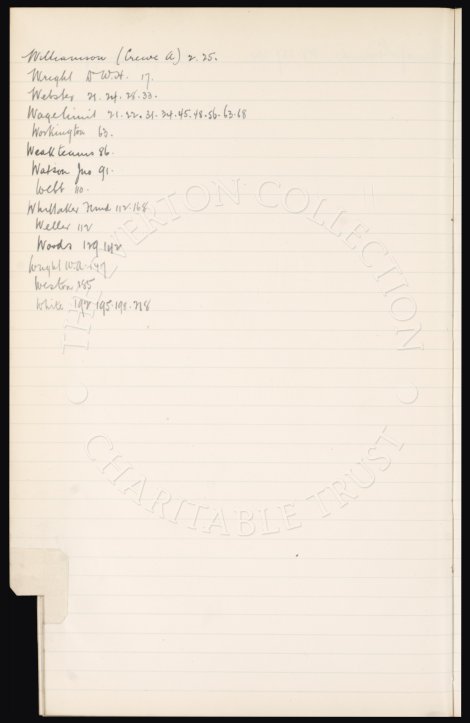 Williamson (Crewe A) 2. 25.
Wright Dr W.H. 17.
Webster 21. 24. 28. 33.
Wage limit 21. 22. 31. 34. 45. 48. 56. 63. 68
Workington 63.
Weak teams 86.
Watson Jno 91.
Webb 110.
Whittaker Fund 112. 168.
Weller 112
Woods 129 142
Wright W.A. 149
Weston 185
White 192 195. 198. 218
THE EVERTON COLLECTION
CHARITABLE TRUST